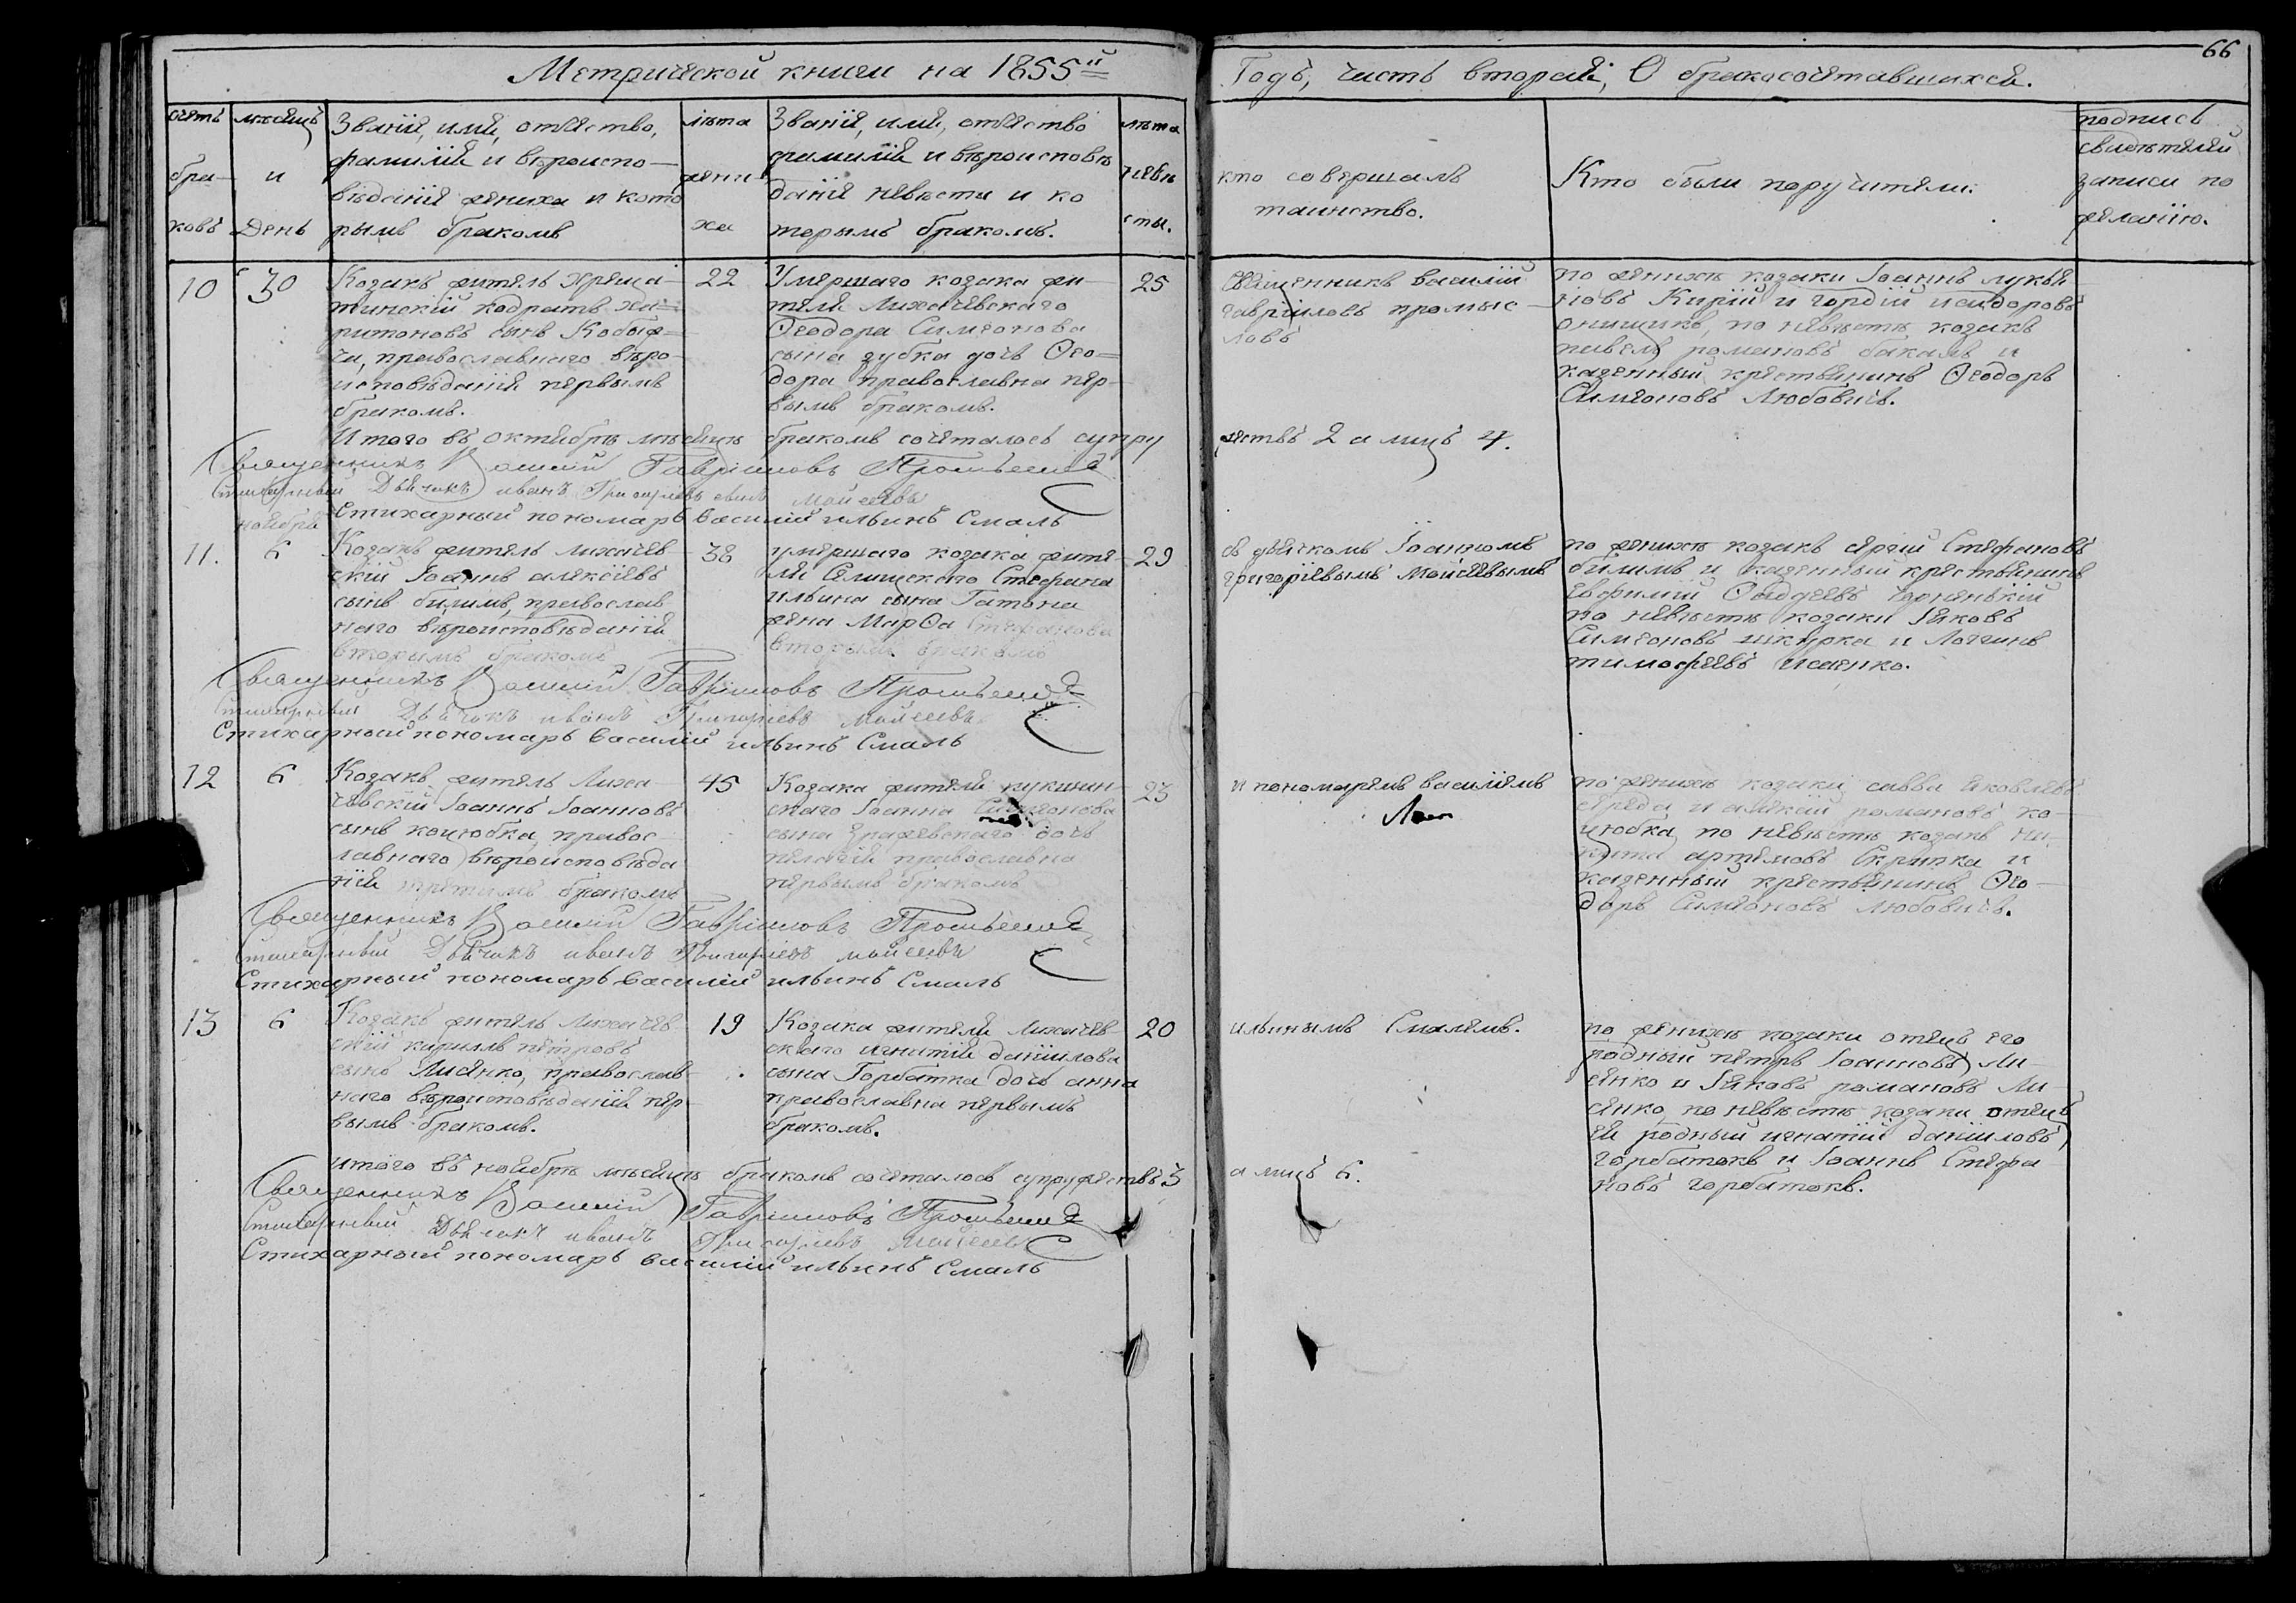 66
Метрической книги на 1855й
Годъ, часть вторая, О бракосочетавшихся.
счетъ
бра-
ковъ
месяцъ
и
День
Званія, имя, отчество,
фамилія и вероиспо-
вѣданія жениха и кото
рымъ бракомъ
лѣта
жени-
ха
Званія, имя, отчество
фамилія и вероисповѣ
данія невѣсти и ко
торымъ бракомъ.
лѣта
невѣ
сты.
кто совершалъ
таинство.
Кто были поручители.
подпись
свидѣтелей
записи по
желанію.
10
30
Козакъ житель Хреща-
тинскій Кодратъ Ха-
ритоновъ сынъ Кобыж-
ча, православнаго вѣро-
исповѣданія первымъ
бракомъ.
22
Умершаго козака жи-
теля Лихачевскаго
Ѳеодора Симеонова
сына зубка дочь Ѳео-
дора православна пер-
вымъ бракомъ.
25
Священникъ василій
гавриловъ промыс-
ловъ
по женихѣ козаки Іоаннъ лукья
новъ Кирій и гордій исидоровъ
онищикъ, по невѣстѣ козакъ
павелъ романовъ бакалъ и
казенный крестьянинъ Ѳеодоръ
Симеоновъ Любовичъ.
Итого въ октябрѣ мѣсяцѣ бракомъ сочеталось супру
жествъ 2 а лицъ 4.
Священникъ Василій Гавріиловъ
Стихарный Дьячокъ иванъ Григорьевъ моисеевъ
Стихарный пономарь василій ильинъ Смаль
ноября
11.
6
Козакъ житель лихачев-
скій Іоаннъ алексіевъ
сынъ билимъ, православ
наго вѣроисповѣданія
вторымъ бракомъ
38
умершаго козака жите-
ля Стефана
ильина сына Гатона
жена Марѳа Стефанова
вторымъ бракомъ
29
съ дьячкомъ Іоанномъ
григоріевымъ Моисѣевымъ
по женихѣ козакъ сергій Стефановъ
билимъ и казенный крестьянинъ
Евфимій Ѳаддеевъ Чорненькій
по невѣстѣ козаки Яковъ
Симеоновъ шкурка и Логинъ
тимофеевъ исаенко.
Священникъ Василій Гавріиловъ
Стихарный Дьячокъ иванъ Григорьевъ моисеевъ
Стихарный пономарь василій ильинъ Смаль
12
6
Козакъ житель Лиха-
чевскій Іоаннъ Іоанновъ
сынъ коцюбка, правос-
лавнаго вѣроисповѣда
нія третимъ бракомъ
45
Козака жителя кукшин-
скаго Іоанна Симеонова
сына дочь
пелагія православна
первымъ бракомъ
23
и пономаремъ василіемъ
по женихѣ козаки савва яковлевъ
середа и алексій романовъ ко-
цюбка, по невѣстѣ козакъ ни-
кита артемовъ Скрипка и
казенный крестьянинъ Ѳео-
доръ Симеоновъ любовичъ.
Священникъ Василій Гавріиловъ
Стихарный Дьячокъ иванъ Григорьевъ моисеевъ
Стихарный пономарь василій ильинъ Смаль
13
6
Козакъ житель лихачев-
скій кириллъ петровъ
сынъ Лисенко, православ-
наго вѣроисповѣданія пер-
вымъ бракомъ.
19
Козака жителя лихачев-
скаго игнатія даніилова
сына Горбатка дочь анна
православна первымъ
бракомъ.
20
ильинымъ Смалемъ.
по женихѣ козаки отецъ его
родный петръ Іоанновъ Ли-
сенко и Яковъ романовъ Ли-
сенко, по невѣстѣ козаки отецъ
ея родный игнатій даніиловъ
горбатокъ и Іоаннъ Стефа
новъ горбатокъ.
итого въ ноябрѣ мѣсяцѣ бракомъ сочеталось супружествъ 3
а лицъ 6.
Священникъ Василій Гавріиловъ
Стихарный Дьячокъ иванъ Григорьевъ моисеевъ
Стихарный пономарь василій ильинъ Смаль